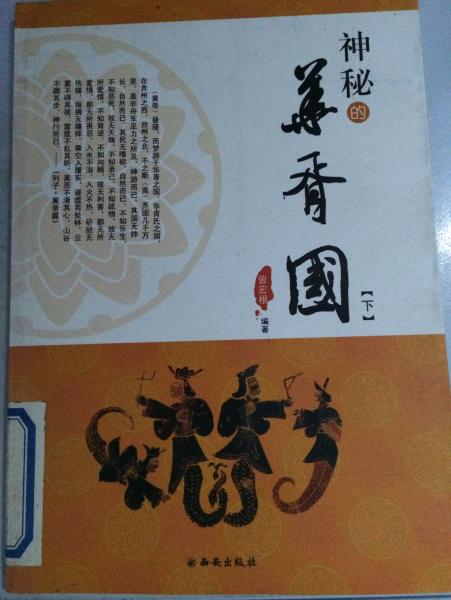 神秘的
華胥國
【下】
曾宏根 编著
(黄帝)昼寝,而梦游于华胥之国。华胥氏之国,
在弇州之西,台州之北,不之斯(离)齐国几千万
里。盖非舟车足力之所及,神游而已。其国无帅
长,自然而已;其民无嗜欲,自然而已。不知乐生,
不知恶死,故无夭殇;不知亲己,不知疏物,故无
所爱憎;不知背逆,不知向顺,故无利害。都无所
爱惜,都无所畏忌。入水不溺,入火不热,斫挞无
伤痛,指擿无痛痒。乘空入履实,寝虚若处林。云
雾不碍其视,雷霆不乱其听,美恶不滑其心,山谷
不踬其步,神行而已。——《列子·黄帝篇》
西安出版社